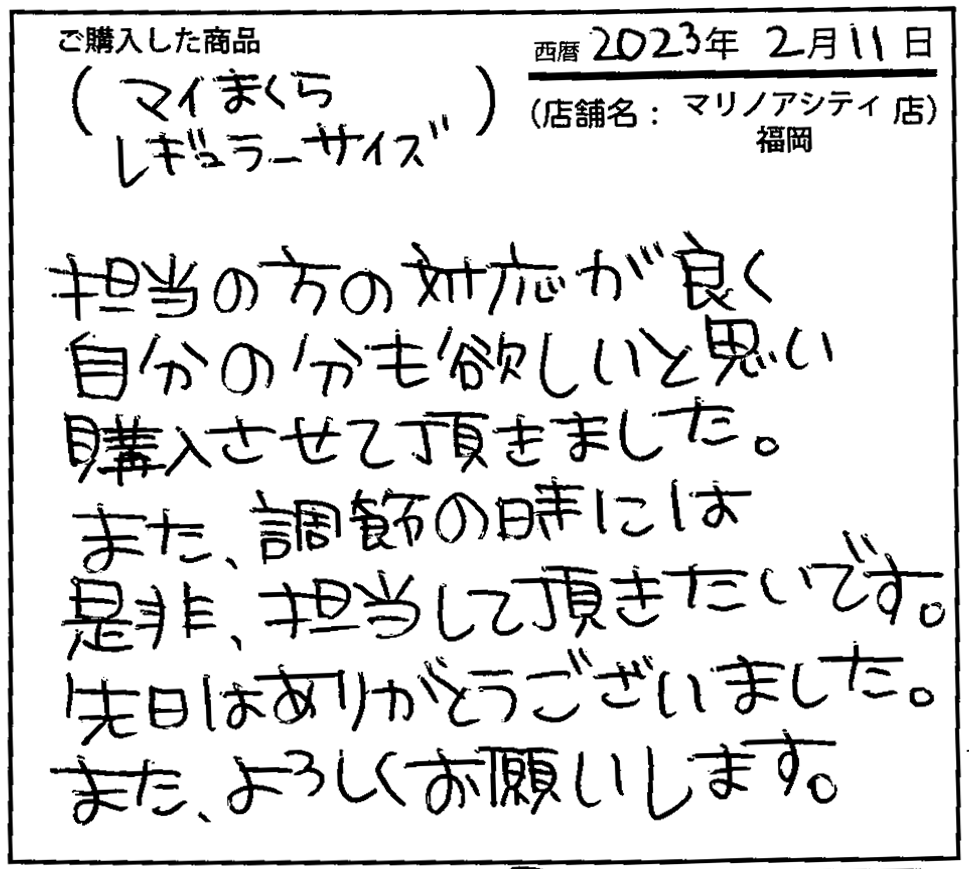 ご購入した商品
西暦 2023年 2月11日
(マイまくら
レギュラーサイズ)
(店舗名: マリノアシティ 店)
福岡
担当の方の対応が良く
自分の分も欲しいと思い
購入させて頂きました。
また、調節の時には
是非、担当して頂きたいです。
先日はありがとうございました。
また、よろしくお願いします。